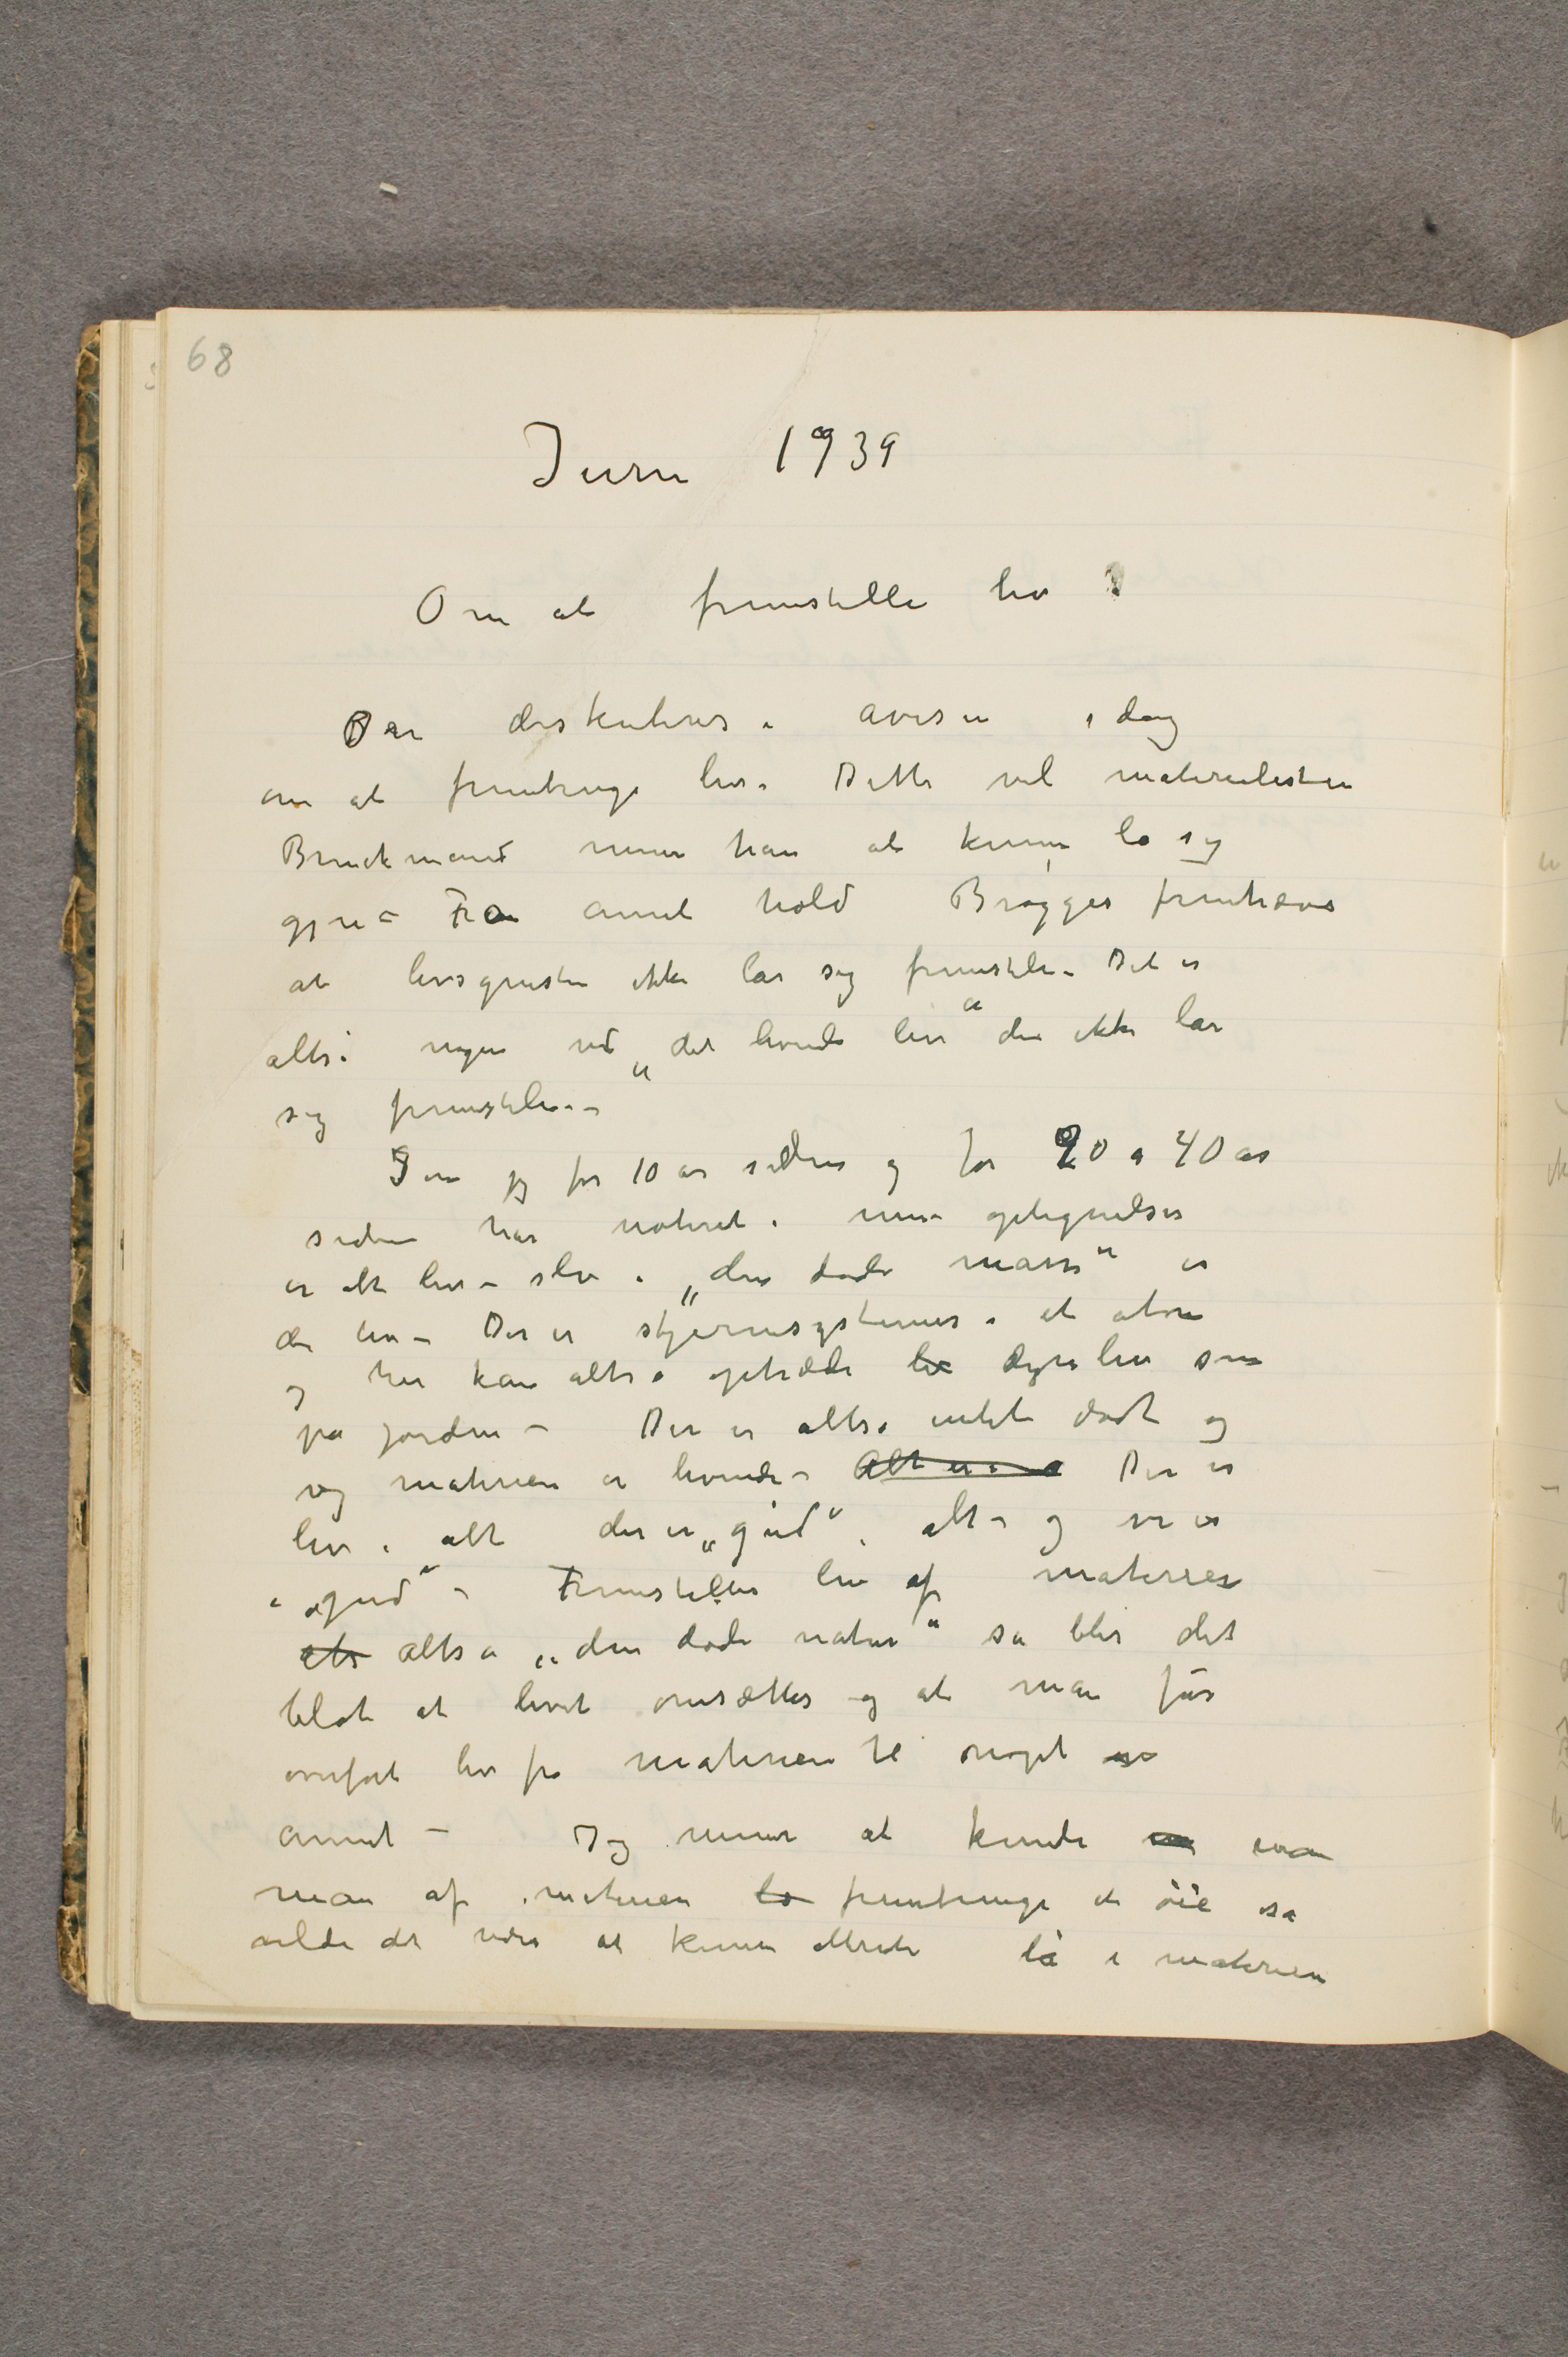 68
Juni 1939
Om at fremstille liv ?
Der diskuteres i avisen idag
om at frembringe liv. Dette vil materialisten
Bruckmand mener han at kunne la sig
gjøre – Fra annet hold Brøgger fremhæves
at livsgnisten ikke lar sig fremstille – Det er
altså noget ved „det levende liv“ der ikke lar
sig fremstille. –
Som jeg for 10 år siden og for 20 a 40 år
siden har noteret i mine optegnelser
er alt liv – selv i „den døde masse“ er
der liv – Der er stjernesystemer i et atom
og her kan altså optræde liv dyreliv som
på jorden – Der er altså intet dødt og
og materien er levende – Alt er i Der er
liv i alt der er „gud“ i alt – og vi er
i „gud“ – Fremstilles liv af materien
alts altså „den døde natur“ så blir det
blot at livet omsættes og at man får
overført liv fra materien til noget
annet – Jeg mener at kunde man
man af materien la frembringe et øie så
vilde det være at kimen allerede lå i materien